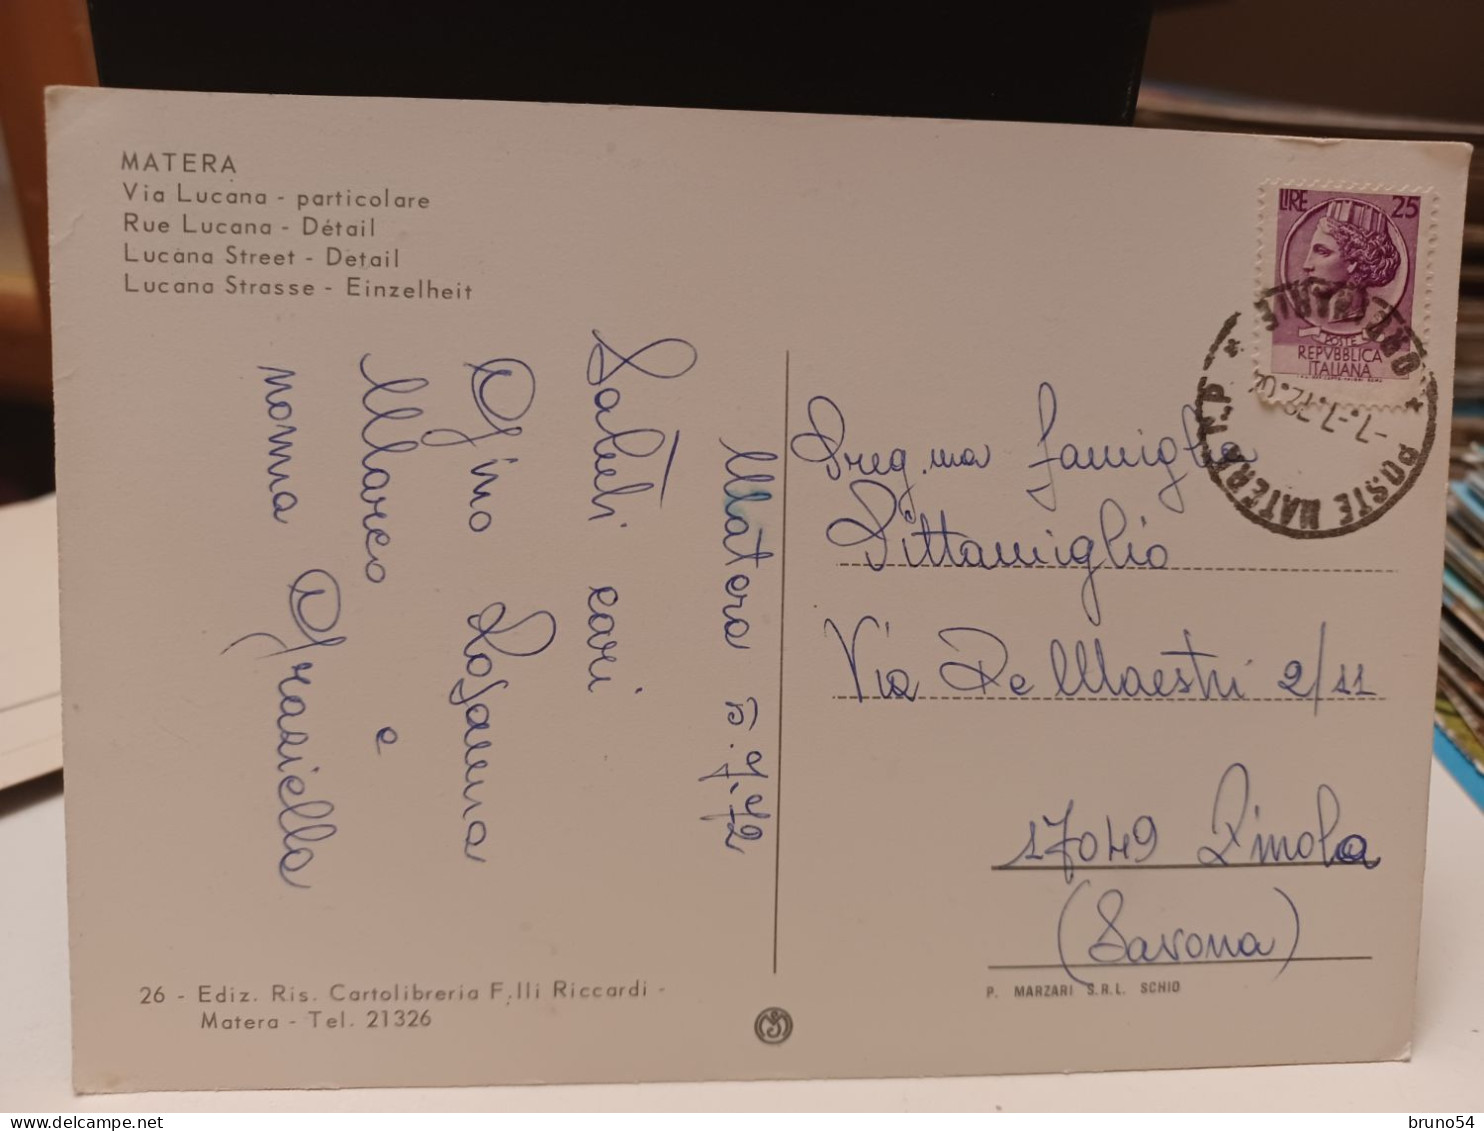 MATERA
Via Lucana - particolare
Rue Lucana - Détail
Lucana Street - Detail
Lucana Strasse - Einzelheit
Matera 5.7.72
Saluti cari
Gino Rosanna
Marco e
nonna Graziella
26 - Ediz. Ris. Cartolibreria F.lli Riccardi -
Matera - Tel. 21326
LIRE 25
POSTE
REPVBBLICA
ITALIANA
POSTE MATERA
ORDINARIE
-7.-7.72.
Preg.ma famiglia
Pittamiglio
Via De Maestri 2/11
17049
(Savona)
P. MARZARI S.R.L. SCHIO
bruno54